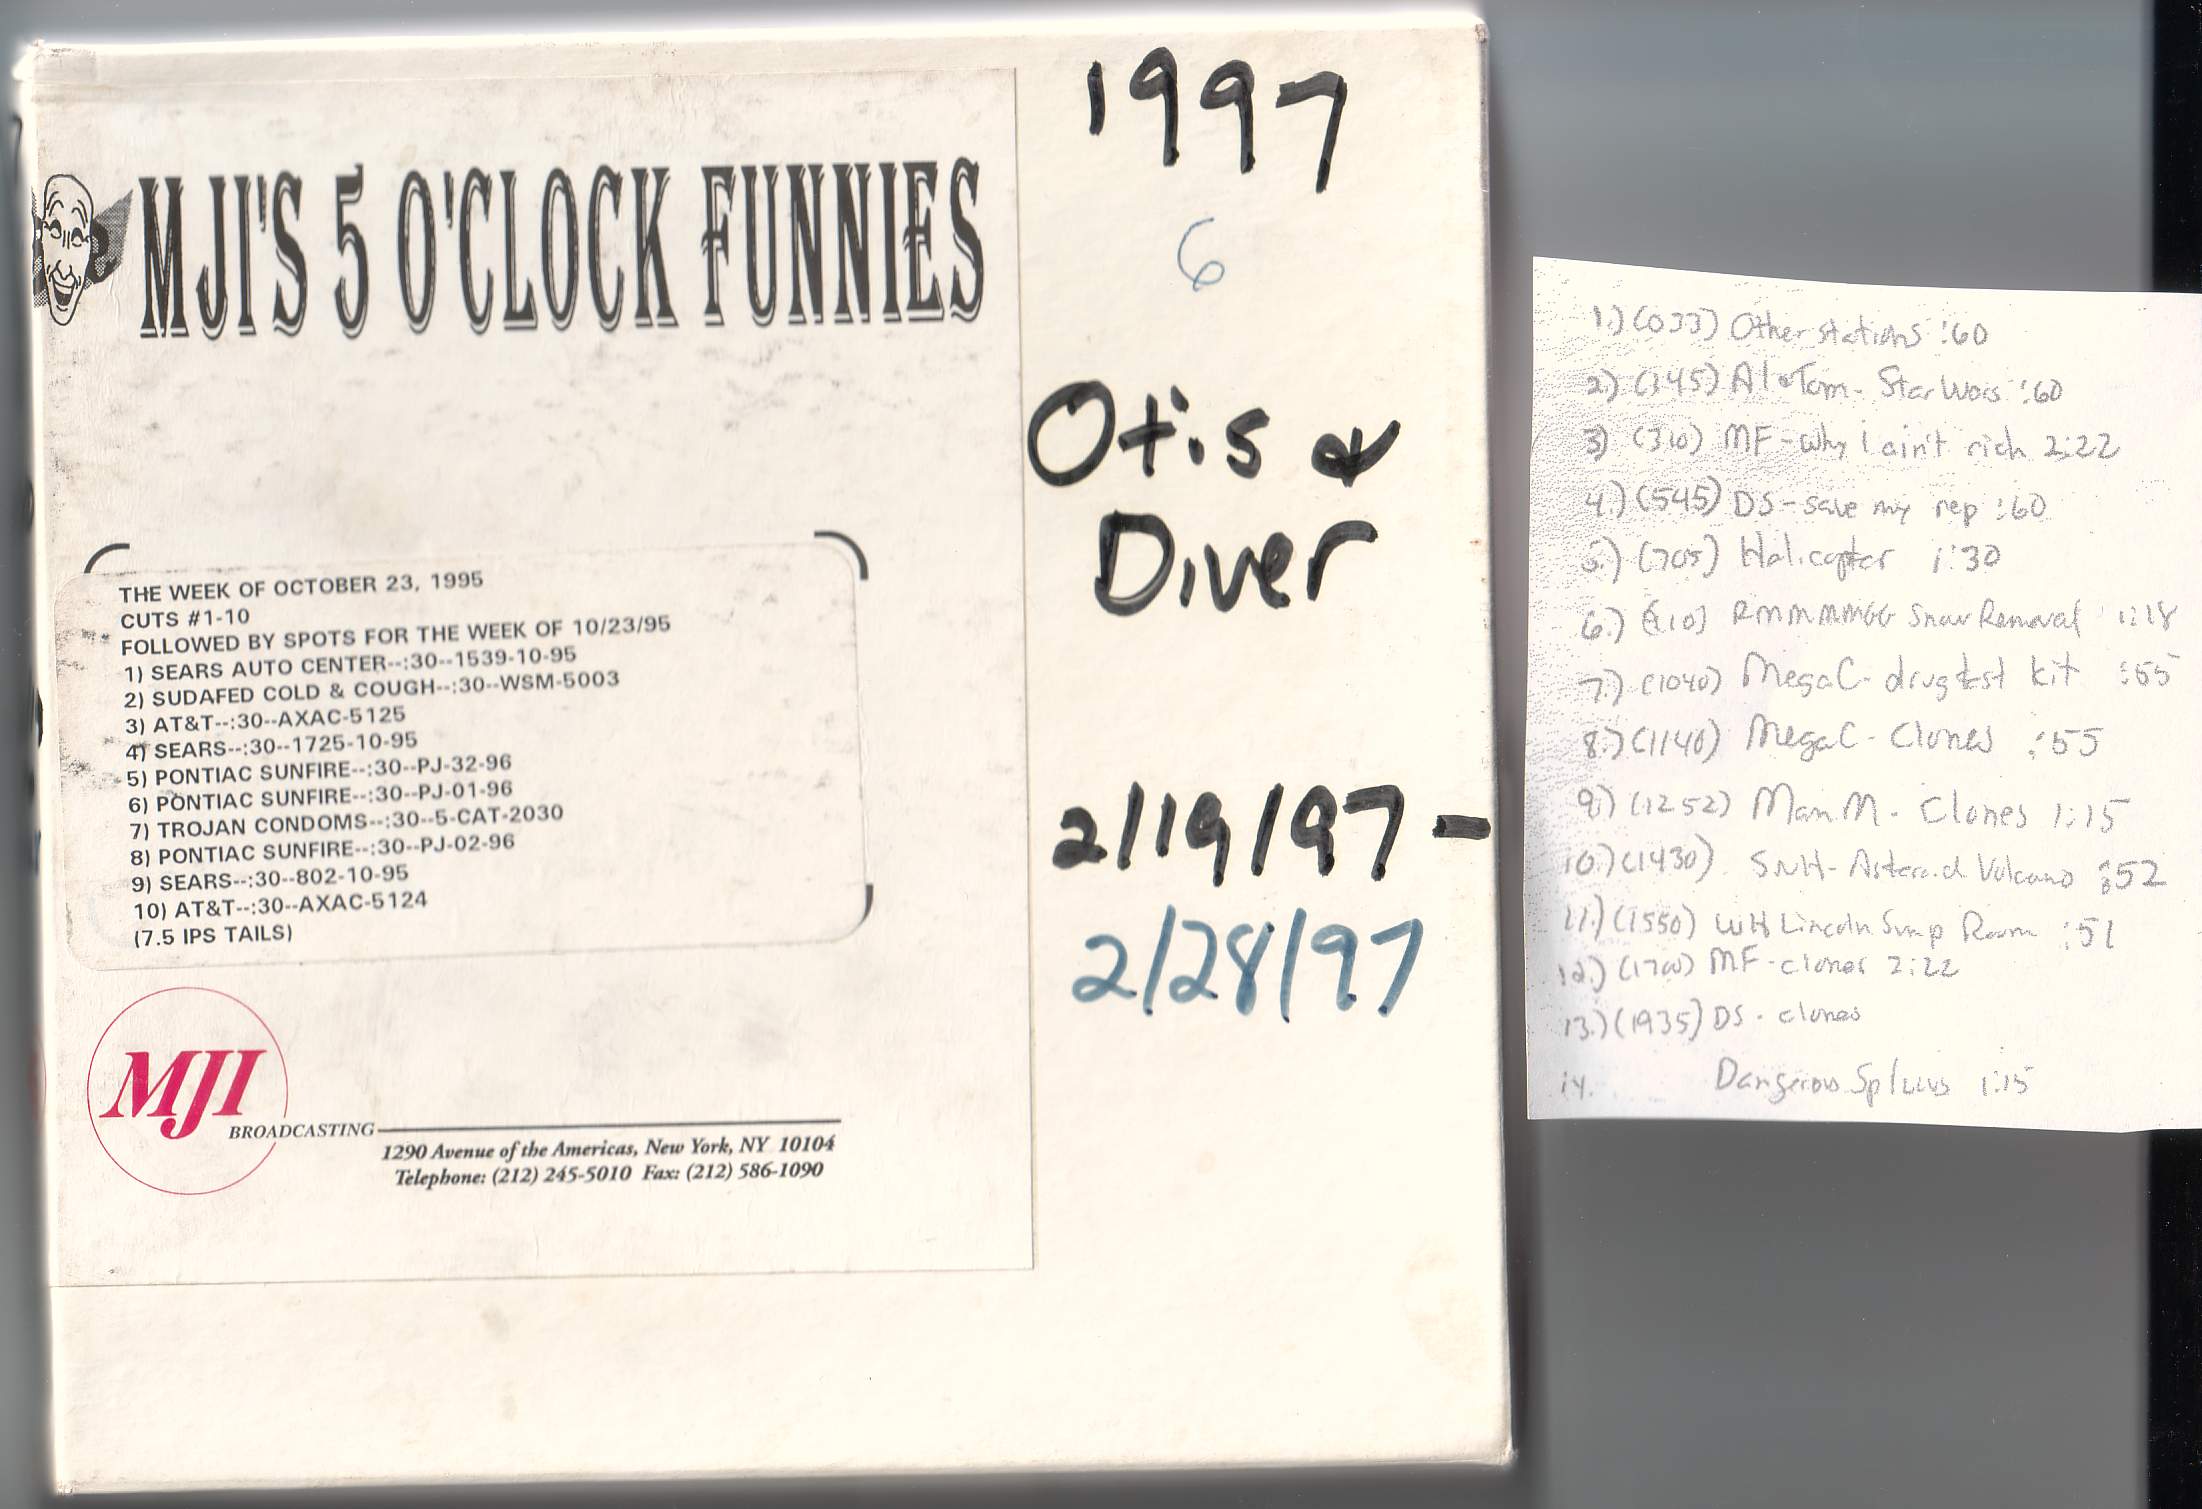 MJI'S 5 O'CLOCK FUNNIES
THE WEEK OF OCTOBER 23, 1995
CUTS #1-10
FOLLOWED BY SPOTS FOR THE WEEK OF 10/23/95
1) SEARS AUTO CENTER--:30--1539-10-95
2) SUDAFED COLD & COUGH--:30--WSM-5003
3) AT&T--:30--AXAC-5125
4) SEARS--:30--1725-10-95
5) PONTIAC SUNFIRE--:30--PJ-32-96
6) PONTIAC SUNFIRE--:30--PJ-01-96
7) TROJAN CONDOMS--:30--5-CAT-2030
8) PONTIAC SUNFIRE--:30--PJ-02-96
9) SEARS--:30--802-10-95
10) AT&T--:30--AXAC-5124
(7.5 IPS TAILS)
MJI
BROADCASTING
1290 Avenue of the Americas, New York, NY 10104
Telephone: (212) 245-5010 Fax: (212) 586-1090
1997
6
Otis &
Diver
2/19/97 -
2/28/97
1.) (033) Other stations :60
2.) (145) Al & Tom - Star Wars :60
3) (310) MF - Why I ain't rich 2:22
4.) (545) DS - save my rep :60
5.) (705) Helicopter 1:30
6.) Snow Removal 1:18
7.) (1040) MegaC - drug test kit :55
8.) (1140) MegaC - Clones :55
9.) (1252) Man.M. - Clones 1:15
10.) (1430) SNH - Asteroid Volcano :52
11.) (1550) WH Lincoln Room :51
12.) (1700) MF - clones 2:22
13.) (1935) DS - clones
14. Dangerous 1:15